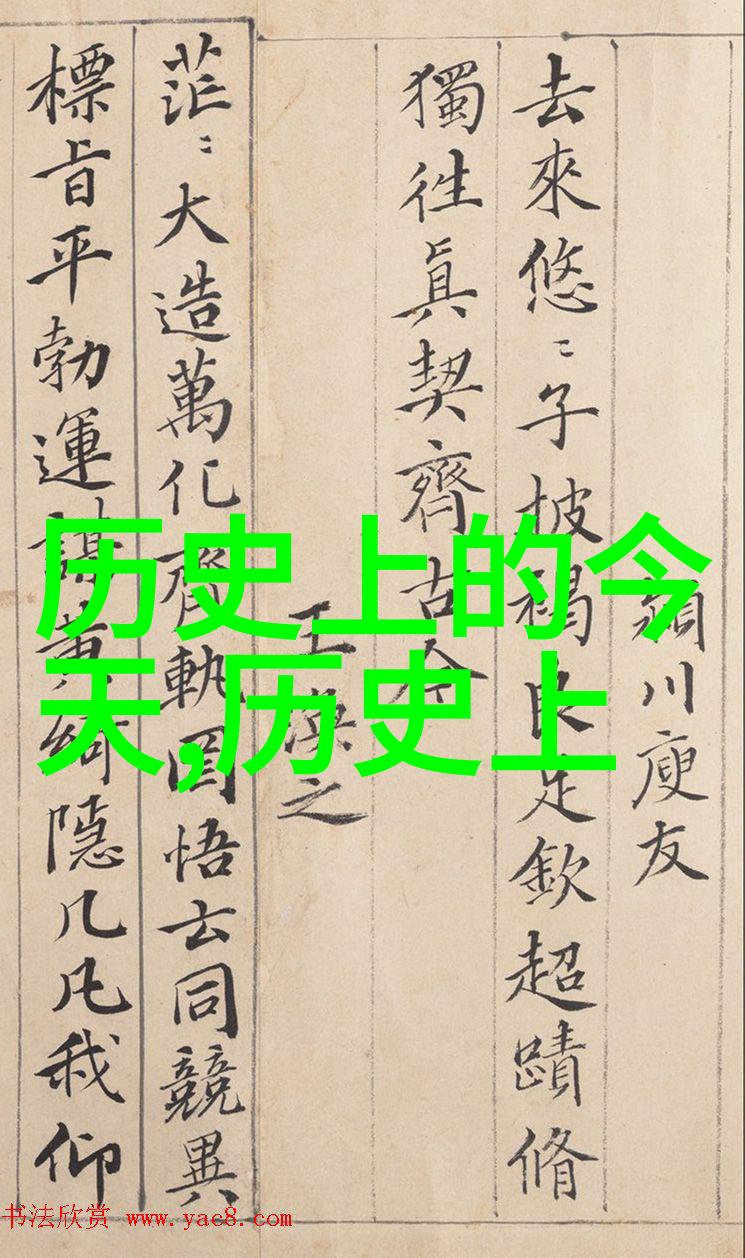 去來悠〻子披褐良足欽超蹟脩
獨往真契齊古今
王渙之
茫〻大造萬化齊軌罔悟玄同競異
標旨平勃運謀黃綺隱几凡我仰
川庾友
历史上的今
天,历史上
书法欣赏 www.yac8.com